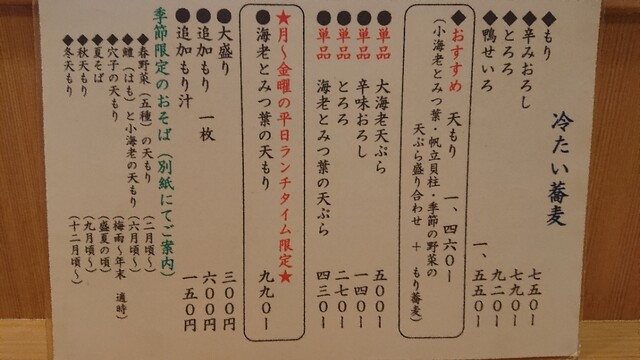 冷たい蕎麦
◆もり 七五〇ー
◆辛みおろし 七九〇ー
◆とろろ 九二〇ー
◆鴨せいろ 一、五五〇ー
◆おすすめ 天もり 一、四六〇ー
（小海老とみつ葉・帆立貝柱・季節の野菜の
天ぷら盛り合わせ ＋ もり蕎麦）
●単品 大海老天ぷら 五〇〇ー
●単品 辛味おろし 一四〇ー
●単品 とろろ 二七〇ー
●単品 海老とみつ葉の天ぷら 四三〇ー
★月～金曜の平日ランチタイム限定★
●海老とみつ葉の天もり 九九〇ー
●大盛り 三〇〇円
●追加もり 一枚 六〇〇円
●追加もり汁 一五〇円
季節限定のおそば（別紙にてご案内）
◆春野菜（五種）の天もり （二月頃～）
◆鱧（はも）と小海老の天もり （六月頃～）
◆穴子の天もり （梅雨～年末 適時）
◆夏そば （盛夏の頃）
◆秋天もり （九月頃～）
◆冬天もり （十二月頃～）